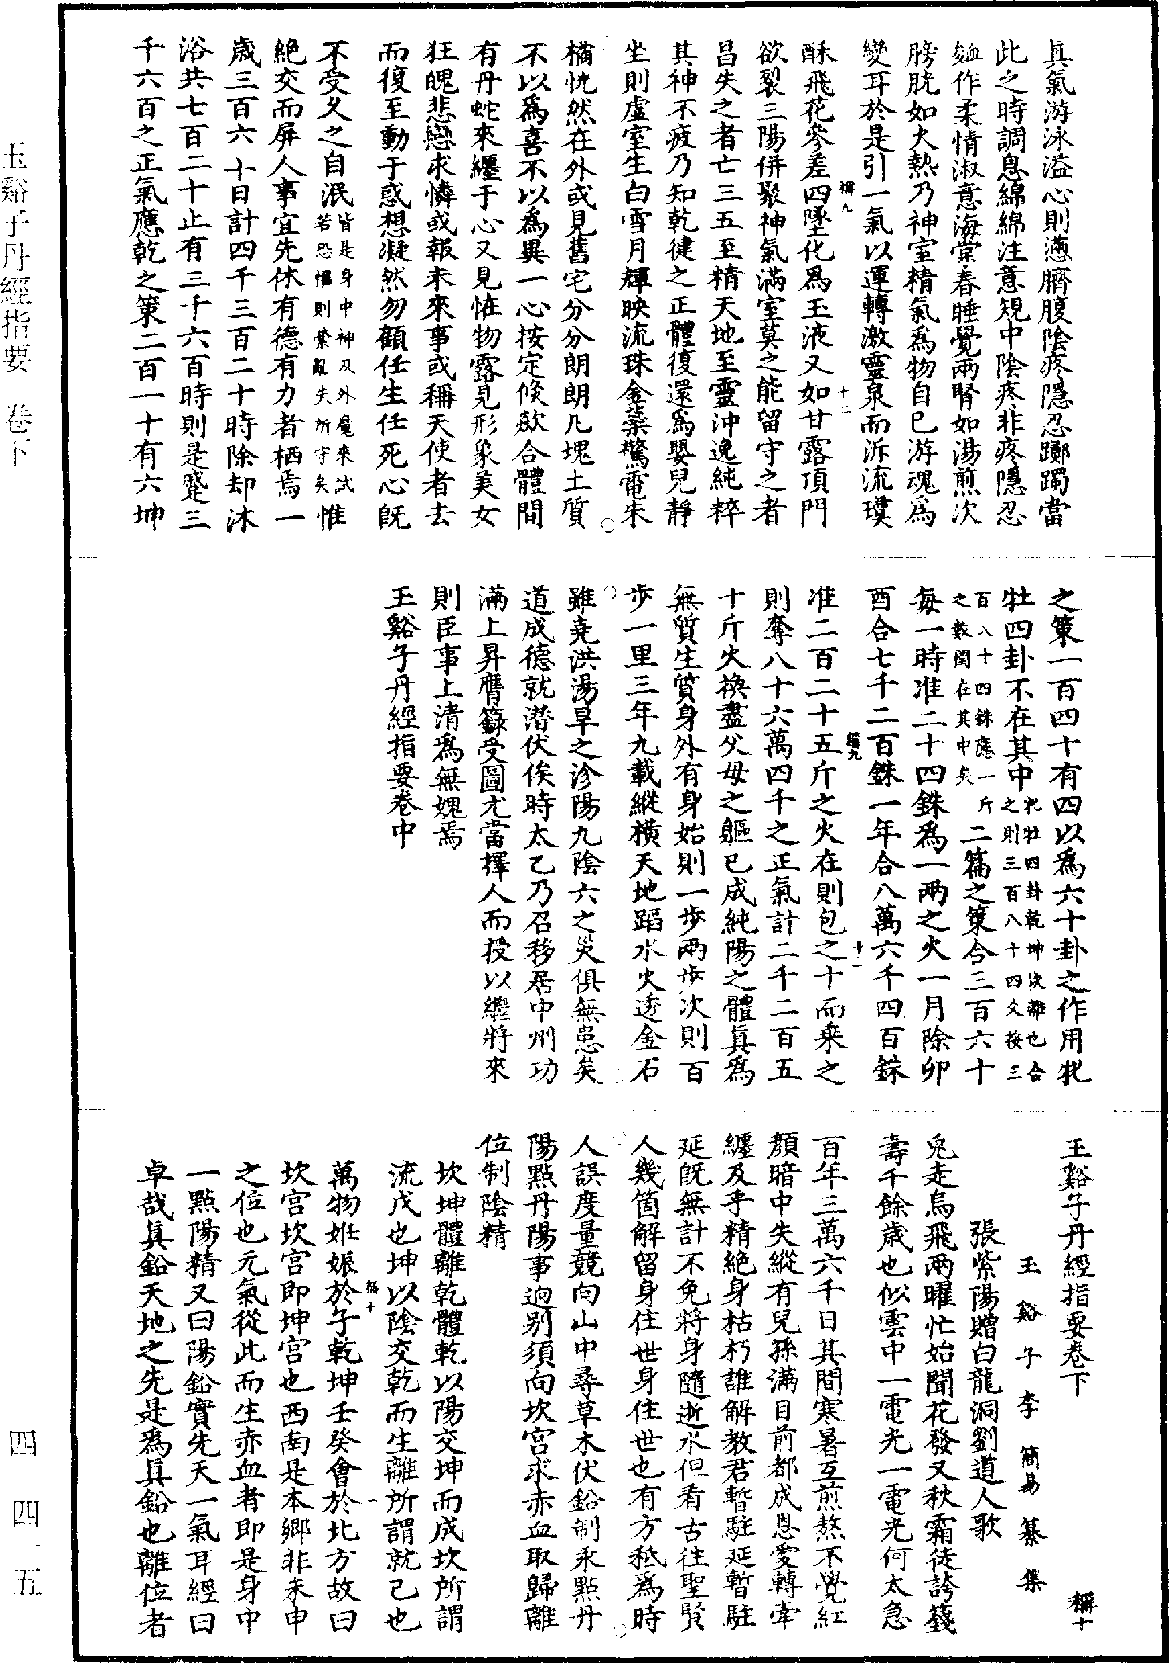 真氣游泳溢心則懣臍腹陰疼隱忍躑躅當
此之時調息綿綿注意規中陰疼非疼隱忍
麵作柔情淑意海棠春睡覺兩腎如湯煎次
膀胱如火熱乃神室精氣爲物自已游魂爲
變耳於是引一氣以運轉激靈泉而泝流璞
酥飛花參差四墜化爲玉液又如甘露頂門
欲裂三陽併聚神氣滿室莫之能留守之者
昌失之者亡三五至精天地至靈沖逸純粹
其神不疲乃知乾健之正體復還爲嬰兒靜
坐則虛室生白雪月輝映流珠金蘂驚電朱
橘恍然在外或見舊宅分分朗朗几塊土質
不以爲喜不以爲異一心按定倏歘合體間
有丹蛇來纏于心又見恠物露見形象美女
狂魄悲戀求憐或報未來事或稱天使者去
而復至動于惑想凝然勿顧任生任死心旣
不受久之自泯皆是身中神及外魔來試若恐懼則縈亂失所守矣惟
絕交而屏人事宜先休有德有力者栖焉一
歲三百六十日計四千三百二十時除却沐
浴共七百二十止有三千六百時則是蹙三
千六百之正氣應乾之策二百一十有六坤
之策一百四十有四以爲六十卦之作用牝
牡四卦不在其中牝牡四卦乾坤坎離也合之則三百八十四爻按三
百八十四銖應一斤之數閏在其中矣二篇之策合三百六十
每一時准二十四銖爲一兩之火一月除卯
酉合七千二百銖一年合八萬六千四百銖
准二百二十五斤之火在則包之十而乘之
則奪八十六萬四千之正氣計二千二百五
十斤火換盡父母之軀已成純陽之體眞爲
無質生質身外有身始則一步兩步次則百
步一里三年九載縱橫天地蹈水火透金石
雖堯洪湯旱之沴陽九陰六之災俱無患矣
道成德就潜伏俟時太乙乃召移居中州功
滿上昇膺籙受圖尤當擇人而授以繼將來
則臣事上清爲無媿焉
玉谿子丹經指要卷中
玉谿子丹經指要卷下
稱十
玉谿子李簡易纂集
張紫陽贈白龍洞劉道人歌
兎走烏飛兩曜忙始聞花發又秋霜徒誇籛
壽千餘歲也似雲中一電光一電光何太急
百年三萬六千日其間寒暑互煎熬不覺紅
顏暗中失縱有兒孫滿目前都成恩愛轉牽
纏及乎精絕身枯朽誰解教君暫駐延暫駐
延旣無計不免將身隨逝水但看古往聖賢
人幾箇解留身住世身住世也有方秪爲時
人誤度量競向山中尋草木伏鉛制汞點丹
陽點丹陽事迥别須向坎宫求赤血取歸離
位制陰精
坎坤體離乾體乾以陽交坤而成坎所謂
流戊也坤以陰交乾而生離所謂就己也
萬物姙娠於子乾坤壬癸會於北方故曰
坎宫坎宫即坤宫也西南是本鄉非未申
之位也元氣從此而生赤血者即是身中
一點陽精又曰陽鉛實先天一氣耳經曰
卓哉眞鉛天地之先是爲眞鉛也離位者
玉谿子丹經指要　卷下
四四·五